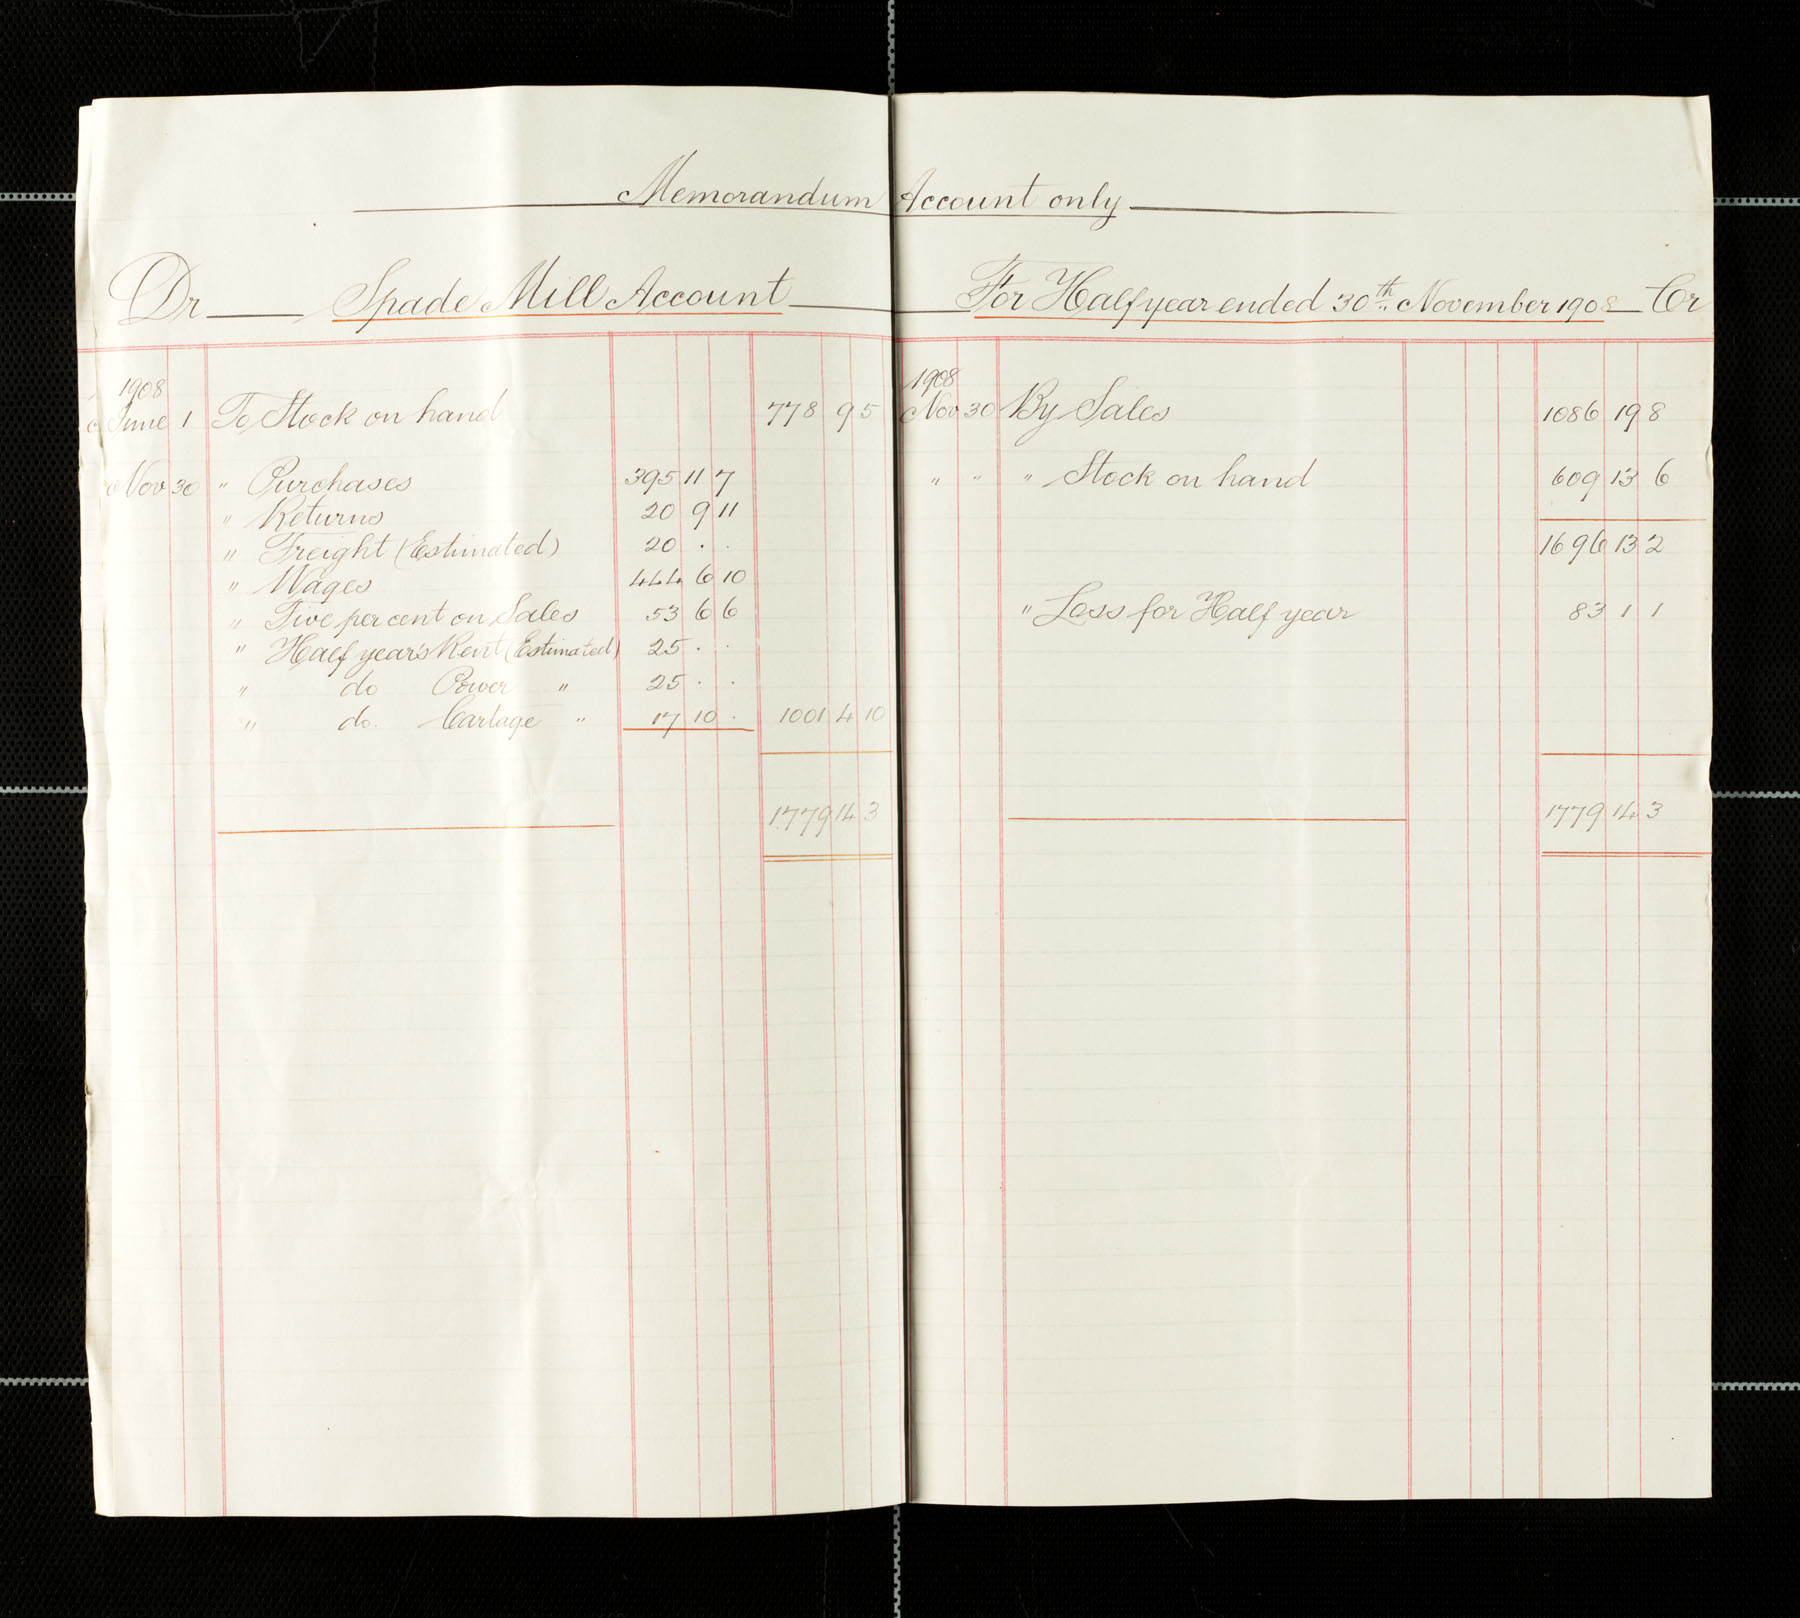 Memorandum Account only
Dr Spade Mill Account For Half year ended 30th November 1908 Cr
1908
June 1 To Stock on hand 778 9 5
Nov 30 " Purchases 395 11 7
" Returns 20 9 11
" Freight (Estimated) 20 . .
" Wages 444 6 10
" Five per cent on Sales 53 6 6
" Half year's Rent (Estimated) 25 . .
" do Power " 25 . .
" do. Cartage " 17 10 . 1001 4 10
1779 14 3
1908
Nov 30 By Sales 1086 19 8
" " " Stock on hand 609 13 6
1696 13 2
" Loss for Half year 83 1 1
1779 14 3